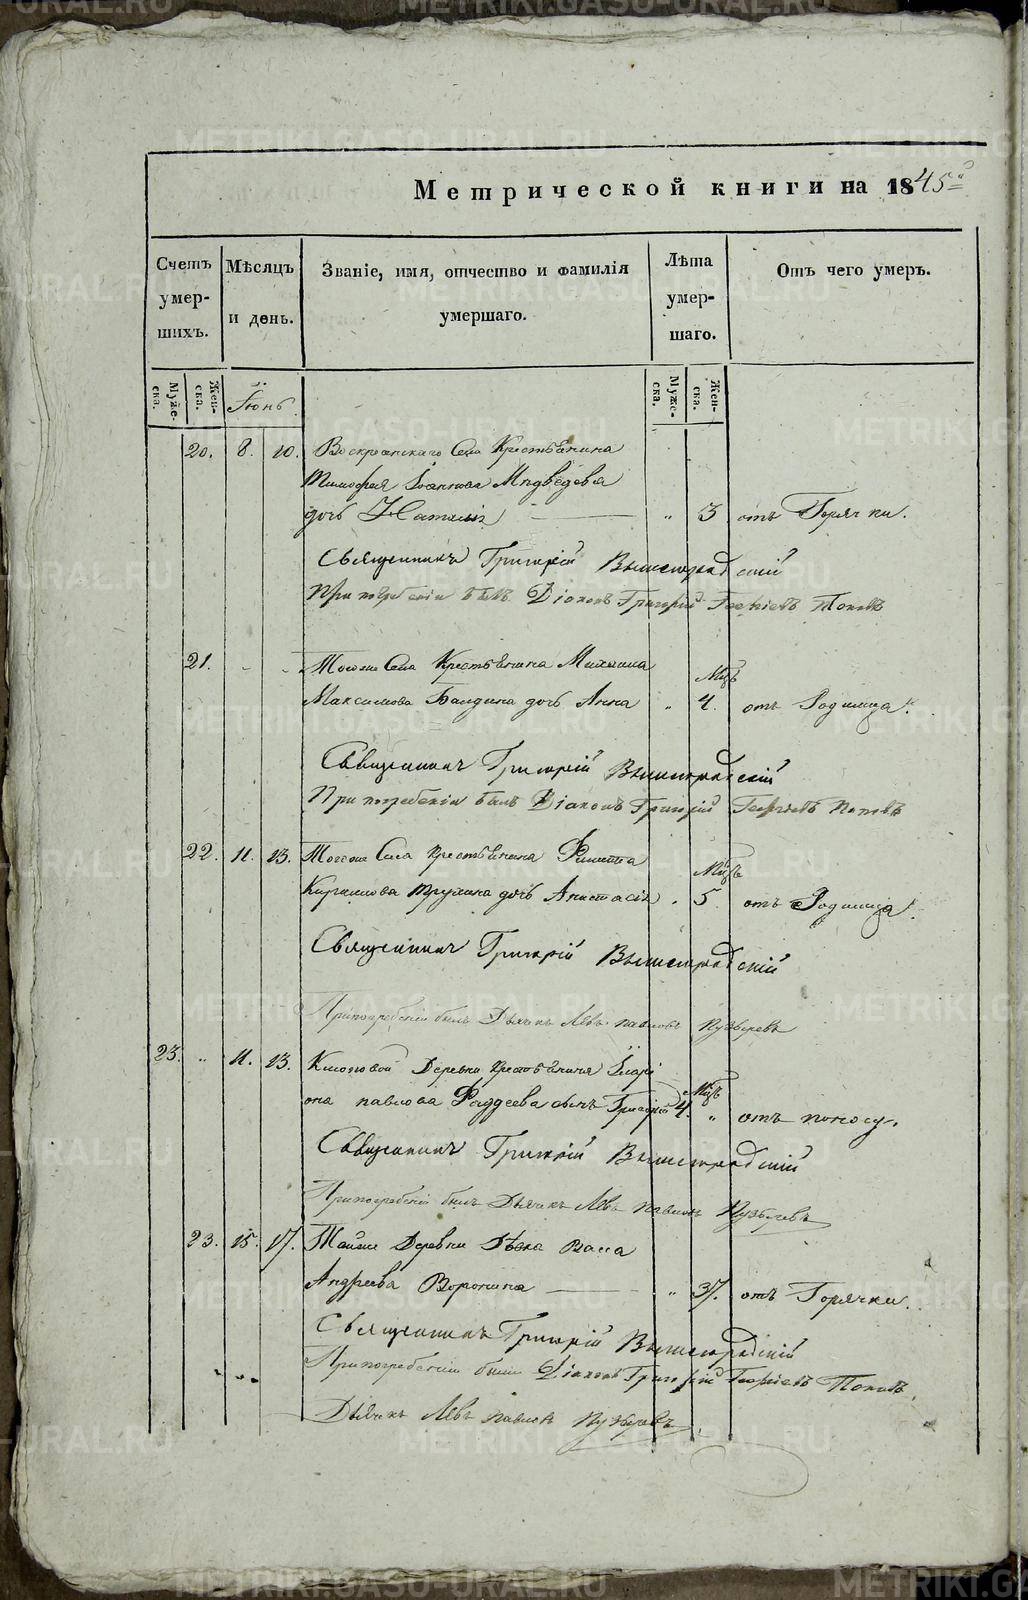 Метрической книги на 1845й
Счетъ умершихъ.
Мѣсяцъ и день.
Званіе, имя, отчество и фамилія умершаго.
Лѣта умершаго.
Отъ чего умеръ.
Мужеска.
Женска.
Іюнь.
Мужеска.
Женска.
20. 8. 10. Воскресенскаго Села Крестьянина
Тимофея Іоаннова Медвѣдева
дочь Наталія „ 3 отъ Горячки.
Священникъ Григорій Вышегородскій
При погребеніи былъ Діаконъ Григорій Георгіевъ Поповъ
21. Тогоже Села Крестьянина Михаила
Мцъ
Максимова дочь Анна „ 4. отъ Родимца.
Священникъ Григорій Вышегородскій
При погребеніи былъ Діаконъ Григорій Георгіевъ Поповъ
22. 11. 13. Тогоже Села Крестьянина Филиппа
Мцъ
Кирилова Трухина дочь Анастасія „ 5. отъ Родимца.
Священникъ Григорій Вышегородскій
При погребеніи былъ Дьячекъ Левъ Павловъ Пузыревъ
23. „ 11. 13. Клюповой Деревни Крестьянина Иларі
Мцъ
она Павлова Фаддеева сынъ Григорій 4. „ отъ поносу.
Священникъ Григорій Вышегородскій
При погребеніи былъ Дьячекъ Левъ Павловъ Пузыревъ
23. 15. 17. Тойже Деревни Дѣвка Васса
Андреева Воронина „ 37. отъ Горячки.
Священникъ Григорій Вышегородскій
При погребеніи были Діаконъ Григорій Георгіевъ Поповъ,
Дьячекъ Левъ Павловъ Пузыревъ
METRIKI.GASO-URAL.RU